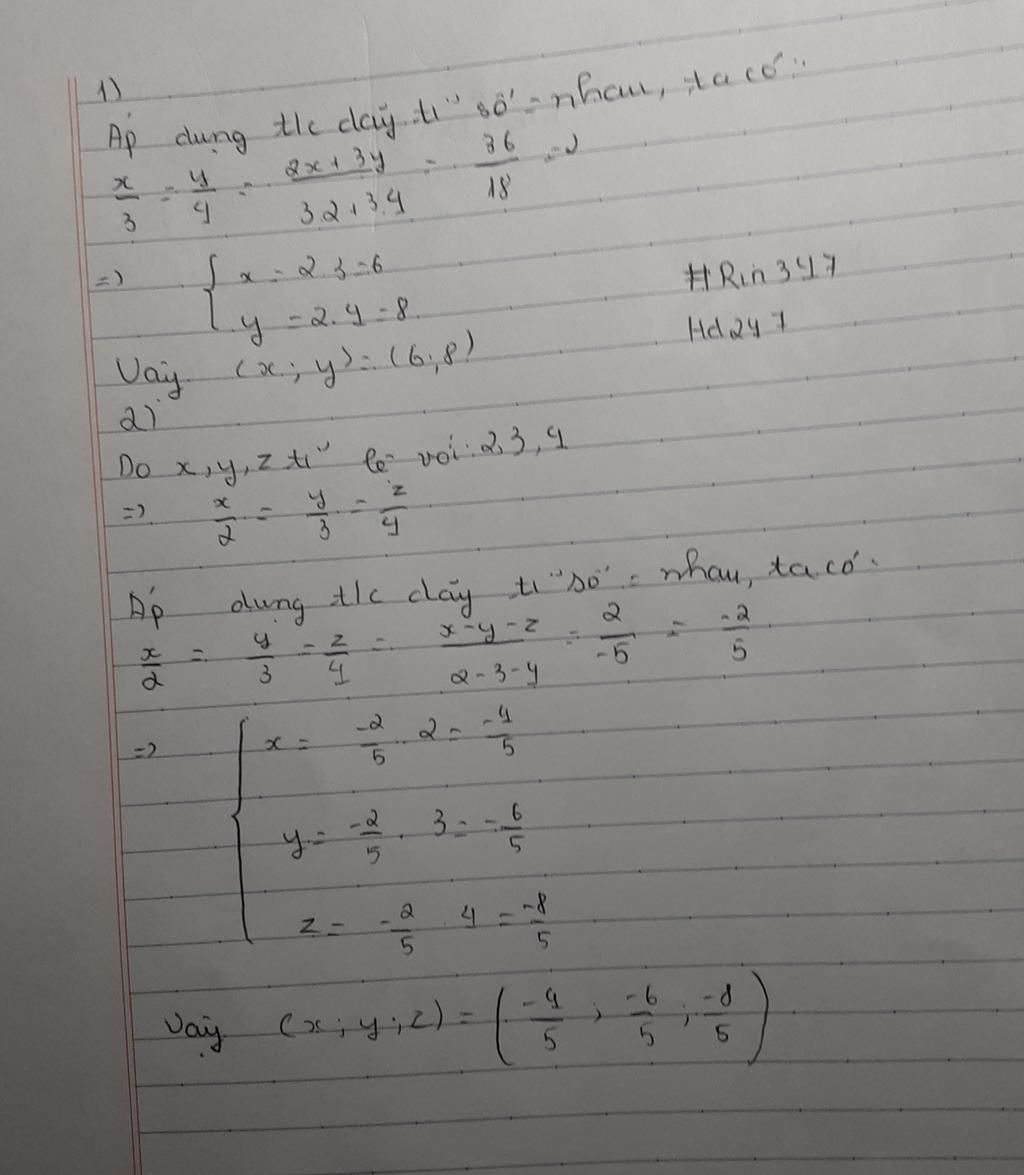 1)
Áp dụng t/c dãy tỉ số = nhau, ta có:
x/3 = y/4 = (2x+3y)/(3.2+3.4) = 36/18 = 2
=> { x = 2.3 = 6
y = 2.4 = 8
#Rin347
Hd247
Vậy (x; y) = (6;8)
2)
Do x, y, z tỉ lệ với 2,3,4
=> x/2 = y/3 = z/4
Áp dụng t/c dãy tỉ số = nhau, ta có:
x/2 = y/3 = z/4 = (x-y-z)/(2-3-4) = 2/-5 = -2/5
=> { x = -2/5 . 2 = -4/5
y = -2/5 . 3 = -6/5
z = -2/5 . 4 = -8/5
Vậy (x; y; z) = (-4/5; -6/5; -8/5)